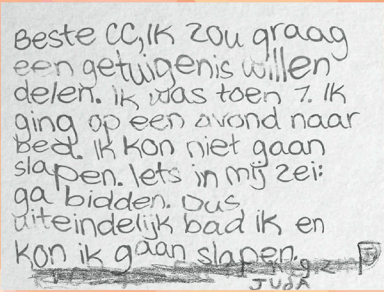 Beste CC, ik zou graag
een getuigenis willen
delen. ik was toen 7. Ik
ging op een avond naar
bed. Ik kon niet gaan
slapen. Iets in mij zei:
ga bidden. Dus
uiteindelijk bad ik en
kon ik gaan slapen.
JUdA